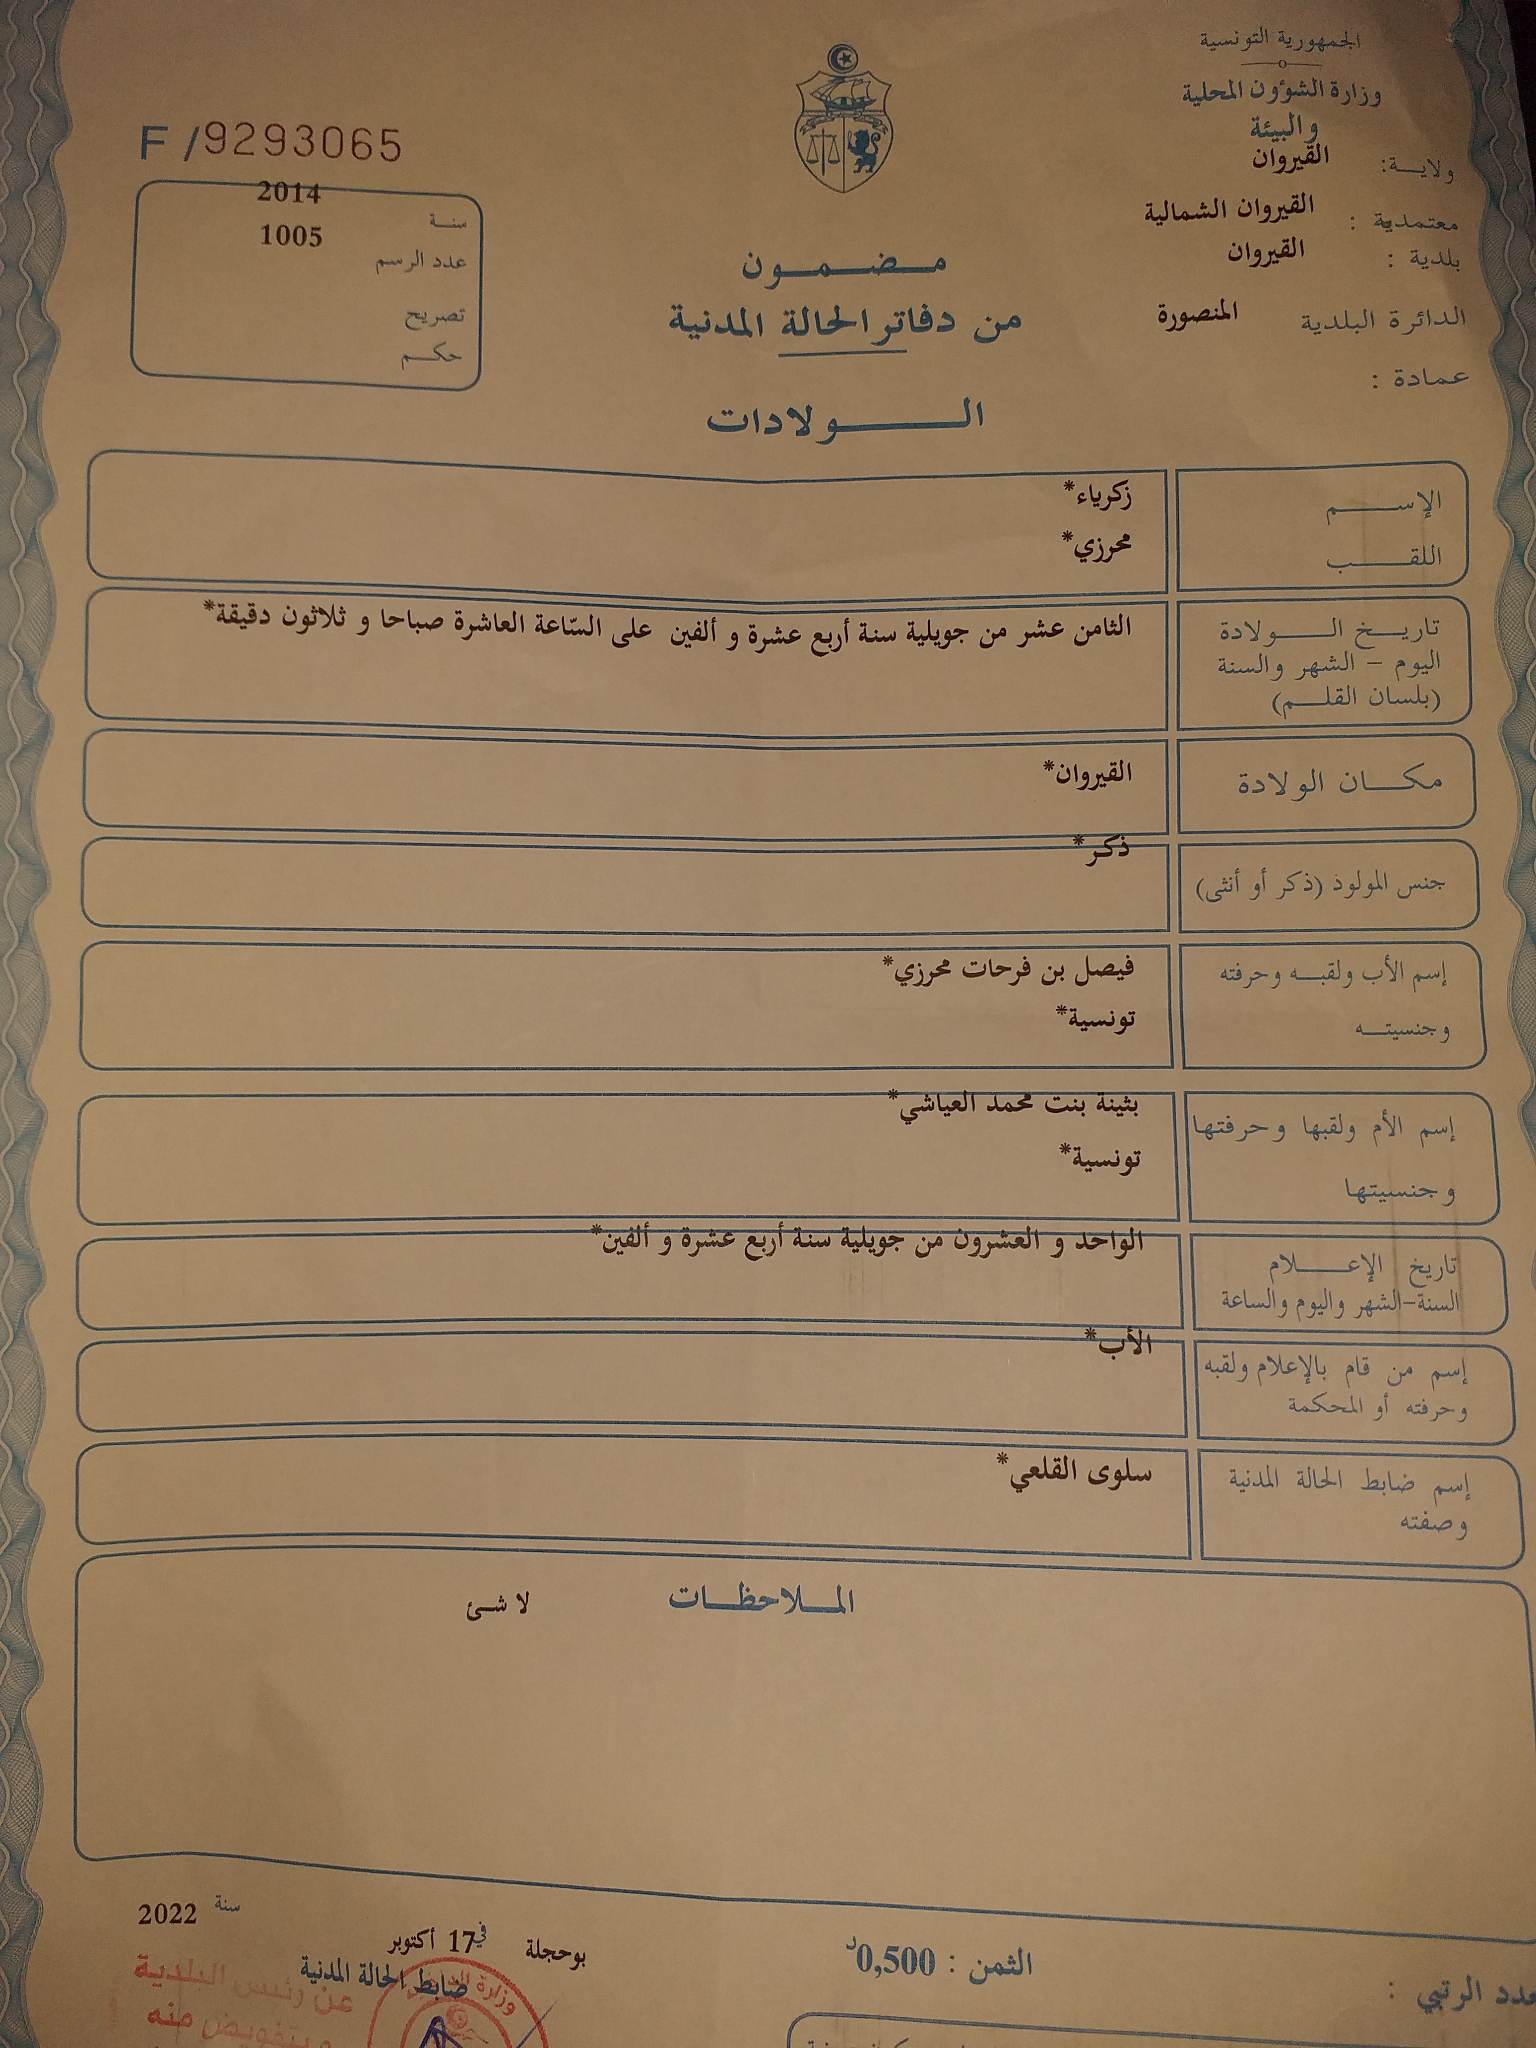 الجمهورية التونسية
وزارة الشؤون المحلية
والبيئة
ولايــة: القيروان
معتمدية : القيروان الشمالية
بلدية : القيروان
الدائرة البلدية المنصورة
عمادة :
F /9293065
سنـة 2014
عدد الرسم 1005
تصريح
حكـــم
مــضــمــون
من دفاتر الحالة المدنية
الــــولادات
الإســــم زكرياء*
اللقــــب محرزي*
تاريــخ الــــولادة الثامن عشر من جويلية سنة أربع عشرة و ألفين على السّاعة العاشرة صباحا و ثلاثون دقيقة*
اليوم – الشهر والسنة
(بلسان القلــم)
مكــان الولادة القيروان*
جنس المولود (ذكر أو أنثى) ذكر*
إسم الأب ولقبــه وحرفته فيصل بن فرحات محرزي*
وجنسيتــه تونسية*
إسم الأم ولقبها وحرفتها بثينة بنت محمد العياشي*
وجنسيتها تونسية*
تاريخ الإعــــلام الواحد و العشرون من جويلية سنة أربع عشرة و ألفين*
السنة-الشهر واليوم والساعة
إسم من قام بالإعلام ولقبه الأب*
وحرفته أو المحكمة
إسم ضابط الحالة المدنية سلوى القلعي*
وصفته
المــلاحظــات لا شئ
بوحجلة في 17 أكتوبر سنة 2022
ضابط الحالة المدنية
عن رئيس البلدية
وبتفويض منه
الثمن : 0,500د
الرتبي :